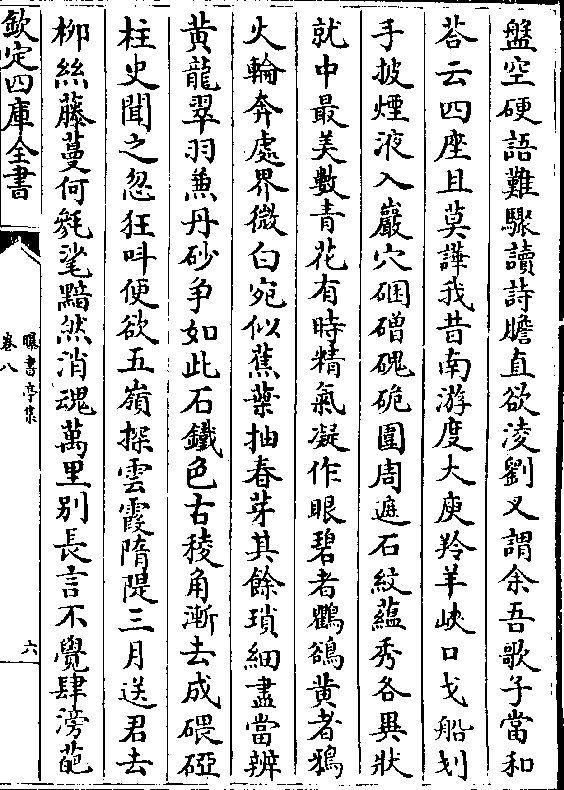 盤空硬語難驟讀詩膽直欲淩劉叉謂余吾歌子當和
荅云四座且莫譁我昔南游度大庾羚羊峽口戈船划
手披煙液入巖穴硱磳磈硊圍周遮石紋蘊秀各異狀
就中最美數青花有時精氣凝作眼碧者鸜鵒黄者鴉
火輪奔處界微白宛似蕉葉抽春芽其餘瑣細盡當辨
黄龍翠羽兼丹砂争如此石鐵色古稜角漸去成碨砑
柱史聞之忽狂叫便欲五嶺探雲霞隋隄三月送君去
柳絲藤蔓何毿毶黯然消魂萬里别長言不覺肆滂葩
欽定四庫全書
曝書亭集
卷八
六